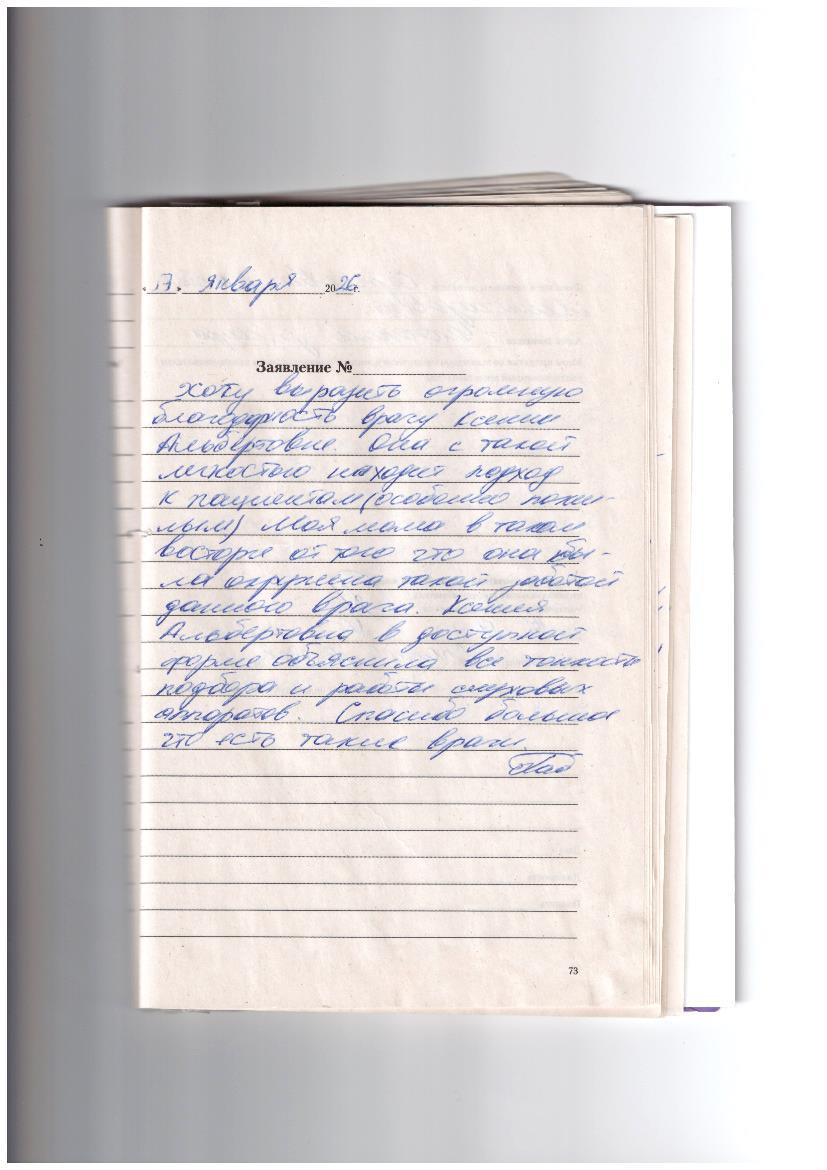 „17" января 2026 г.
Заявление №
Хочу выразить огромную
благодарность врачу Ксении
Альбертовне. Она с такой
легкостью находит подход
к пациентам (особенно пожи-
лым) Моя мама в таком
восторге от того что она бы-
ла окружена такой заботой
данного врача. Ксения
Альбертовна в доступной
форме объяснила все тонкости
подбора и работы слуховых
аппаратов. Спасибо большое
что есть такие врачи.
73